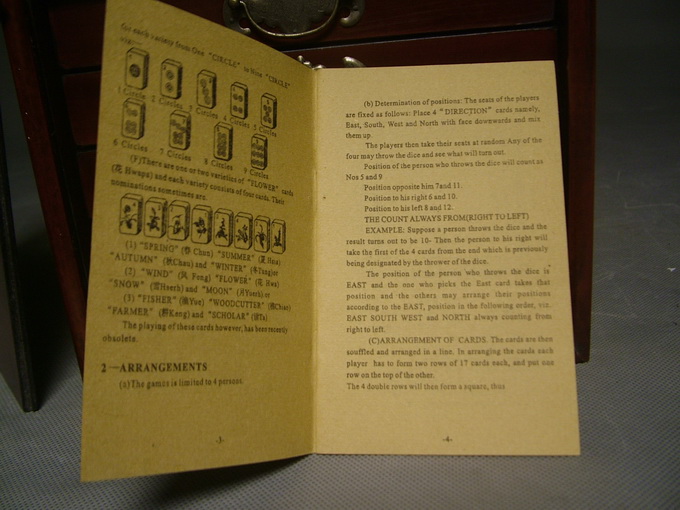 for each variety from One "CIRCLE" to Nine "CIRCLE"
viz:—
1 Circles 2 Circles 3 Circles 4 Circles 5 Circles
6 Circles 7 Circles 8 Circles 9 Circles
(F)There are one or two varieties of "FLOWER" cards
(花 Hwapa) and each variety consists of four cards. Their
nominations sometimes are.
(1) "SPRING" (春 Chun) "SUMMER" (夏 Hsia)
"AUTUMN" (秋Chau) and "WINTER" (冬Tung)or
(2) "WIND" (風 Fong) "FLOWER" (花 Hwa)
"SNOW" (雪Hserh) and "MOON" (月Yueh) or
(3) "FISHER" (漁Yue) "WOODCUTTER" (樵Chiao)
"FARMER" (耕Kang) and "SCHOLAR" (讀Tu)
The playing of these cards however, has been recently
obsolets.
2—ARRANGEMENTS
(a)The games is limited to 4 persons.
-3-
(b) Determination of positions: The seats of the players
are fixed as follows: Place 4 "DIRECTION" cards namely,
EAST, South, West and North with face downwards and mix
them up.
The players then take their seats at random Any of the
four may throw the dice and see what will turn out.
Position of the person who throws the dice will count as
Nos 5 and 9
Position opposite him 7and 11.
Position to his right 6 and 10.
Position to his left 8 and 12.
THE COUNT ALWAYS FROM(RIGHT TO LEFT)
EXAMPLE: Suppose a person throws the dice and the
result turns out to be 10- Then the person to his right will
take the first of the 4 cards from the end which is previously
being designated by the thrower of the dice.
The position of the person who throws the dice is
EAST and the one who picks the East card takes that
position and the others may arrange their positions
according to the EAST, position in the following order, viz.
EAST SOUTH WEST and NORTH always counting from
right to left.
(C)ARRANGEMENT OF CARDS. The cards are then
souffled and arranged in a line. In arranging the cards each
player has to form two rows of 17 cards each, and put one
row on the top of the other.
The 4 double rows will then form a square, thus
-4-